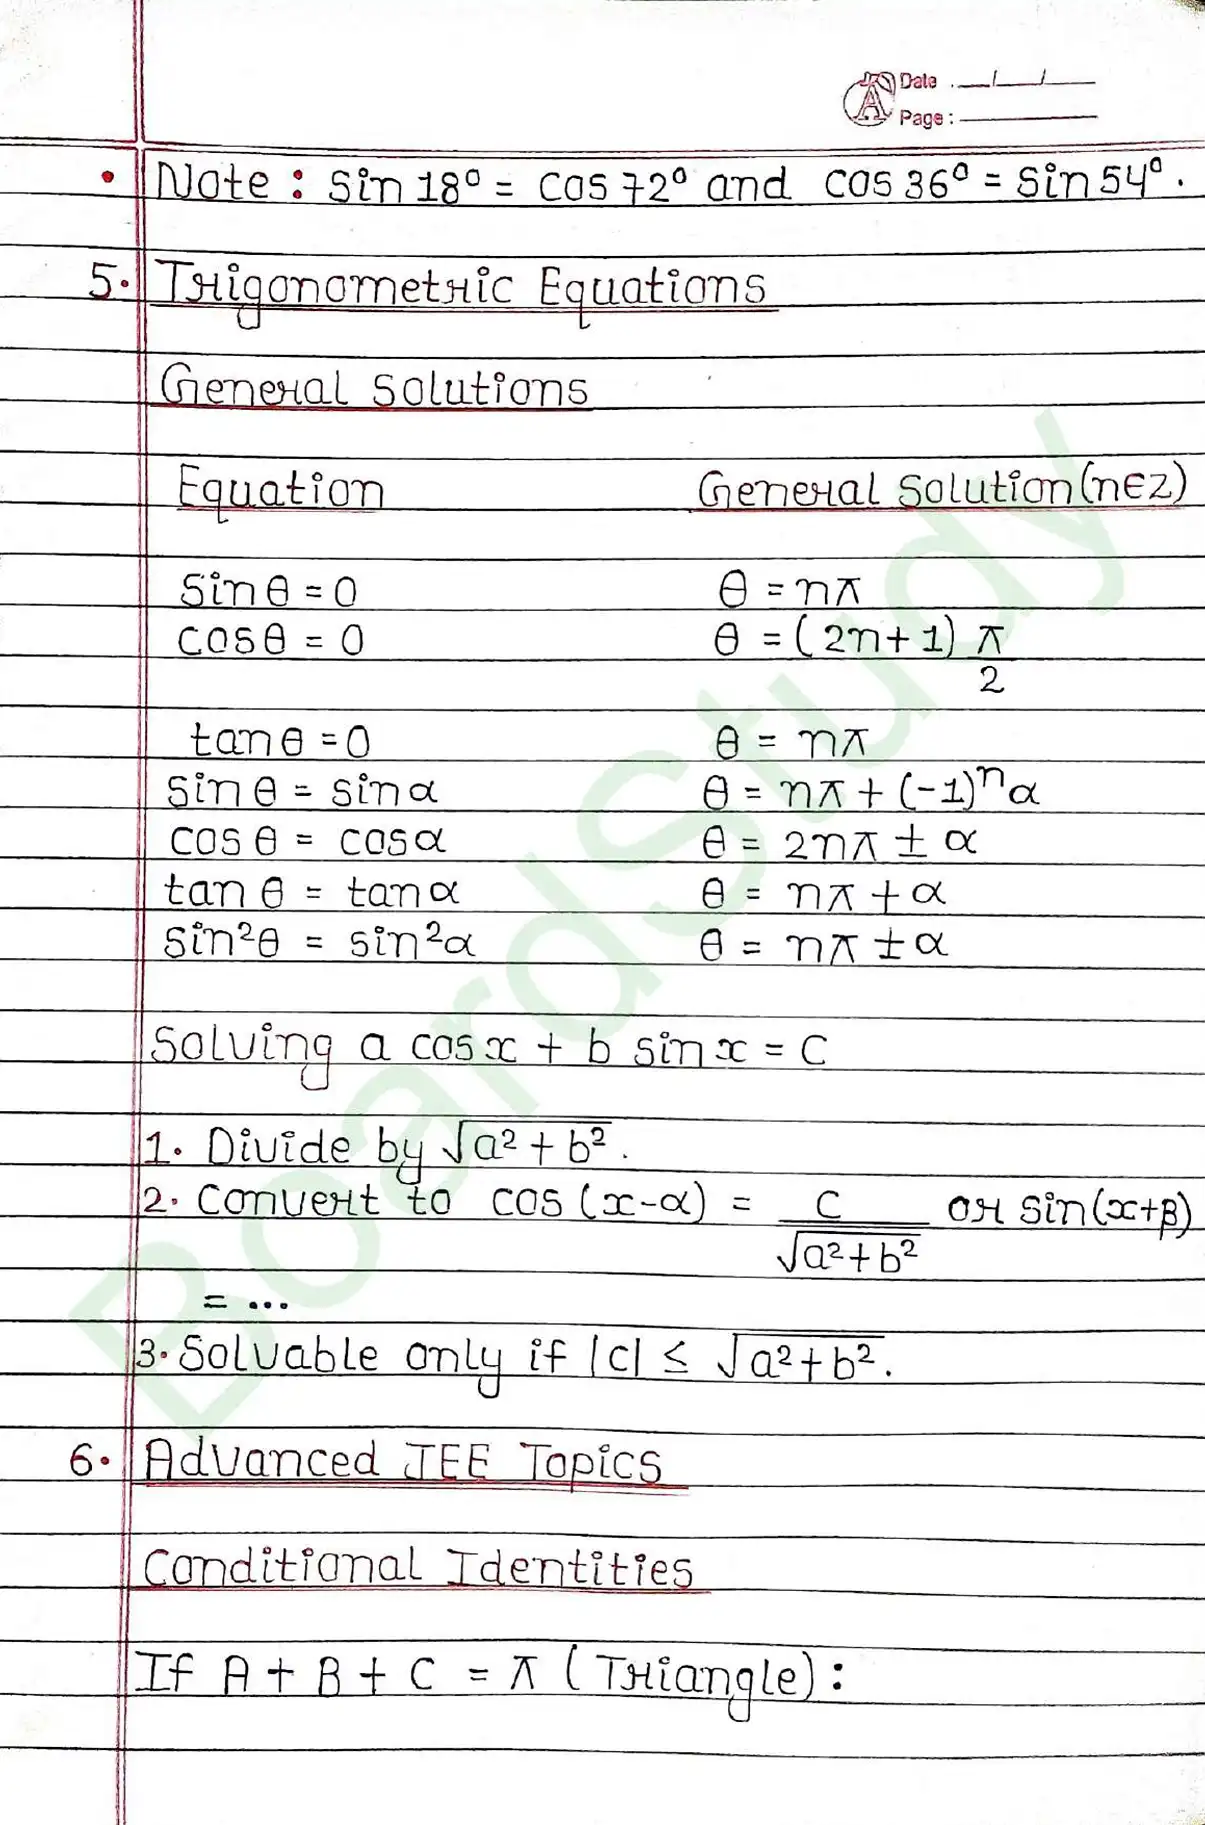 Date : __/__/__
Page :
• Note : sin 18° = cos 72° and cos 36° = sin 54°.
5. Trigonometric Equations
General Solutions
Equation General Solution (n∈Z)
sin θ = 0 θ = nπ
cos θ = 0 θ = (2n+1) π/2
tan θ = 0 θ = nπ
sin θ = sin α θ = nπ + (-1)ⁿα
cos θ = cos α θ = 2nπ ± α
tan θ = tan α θ = nπ + α
sin²θ = sin²α θ = nπ ± α
Solving a cos x + b sin x = C
1. Divide by √(a² + b²).
2. Convert to cos (x-α) = C/√(a²+b²) or sin(x+β)
= ...
3. Solvable only if |c| ≤ √(a²+b²).
6. Advanced JEE Topics
Conditional Identities
If A + B + C = π (Triangle) :
BoardStudy